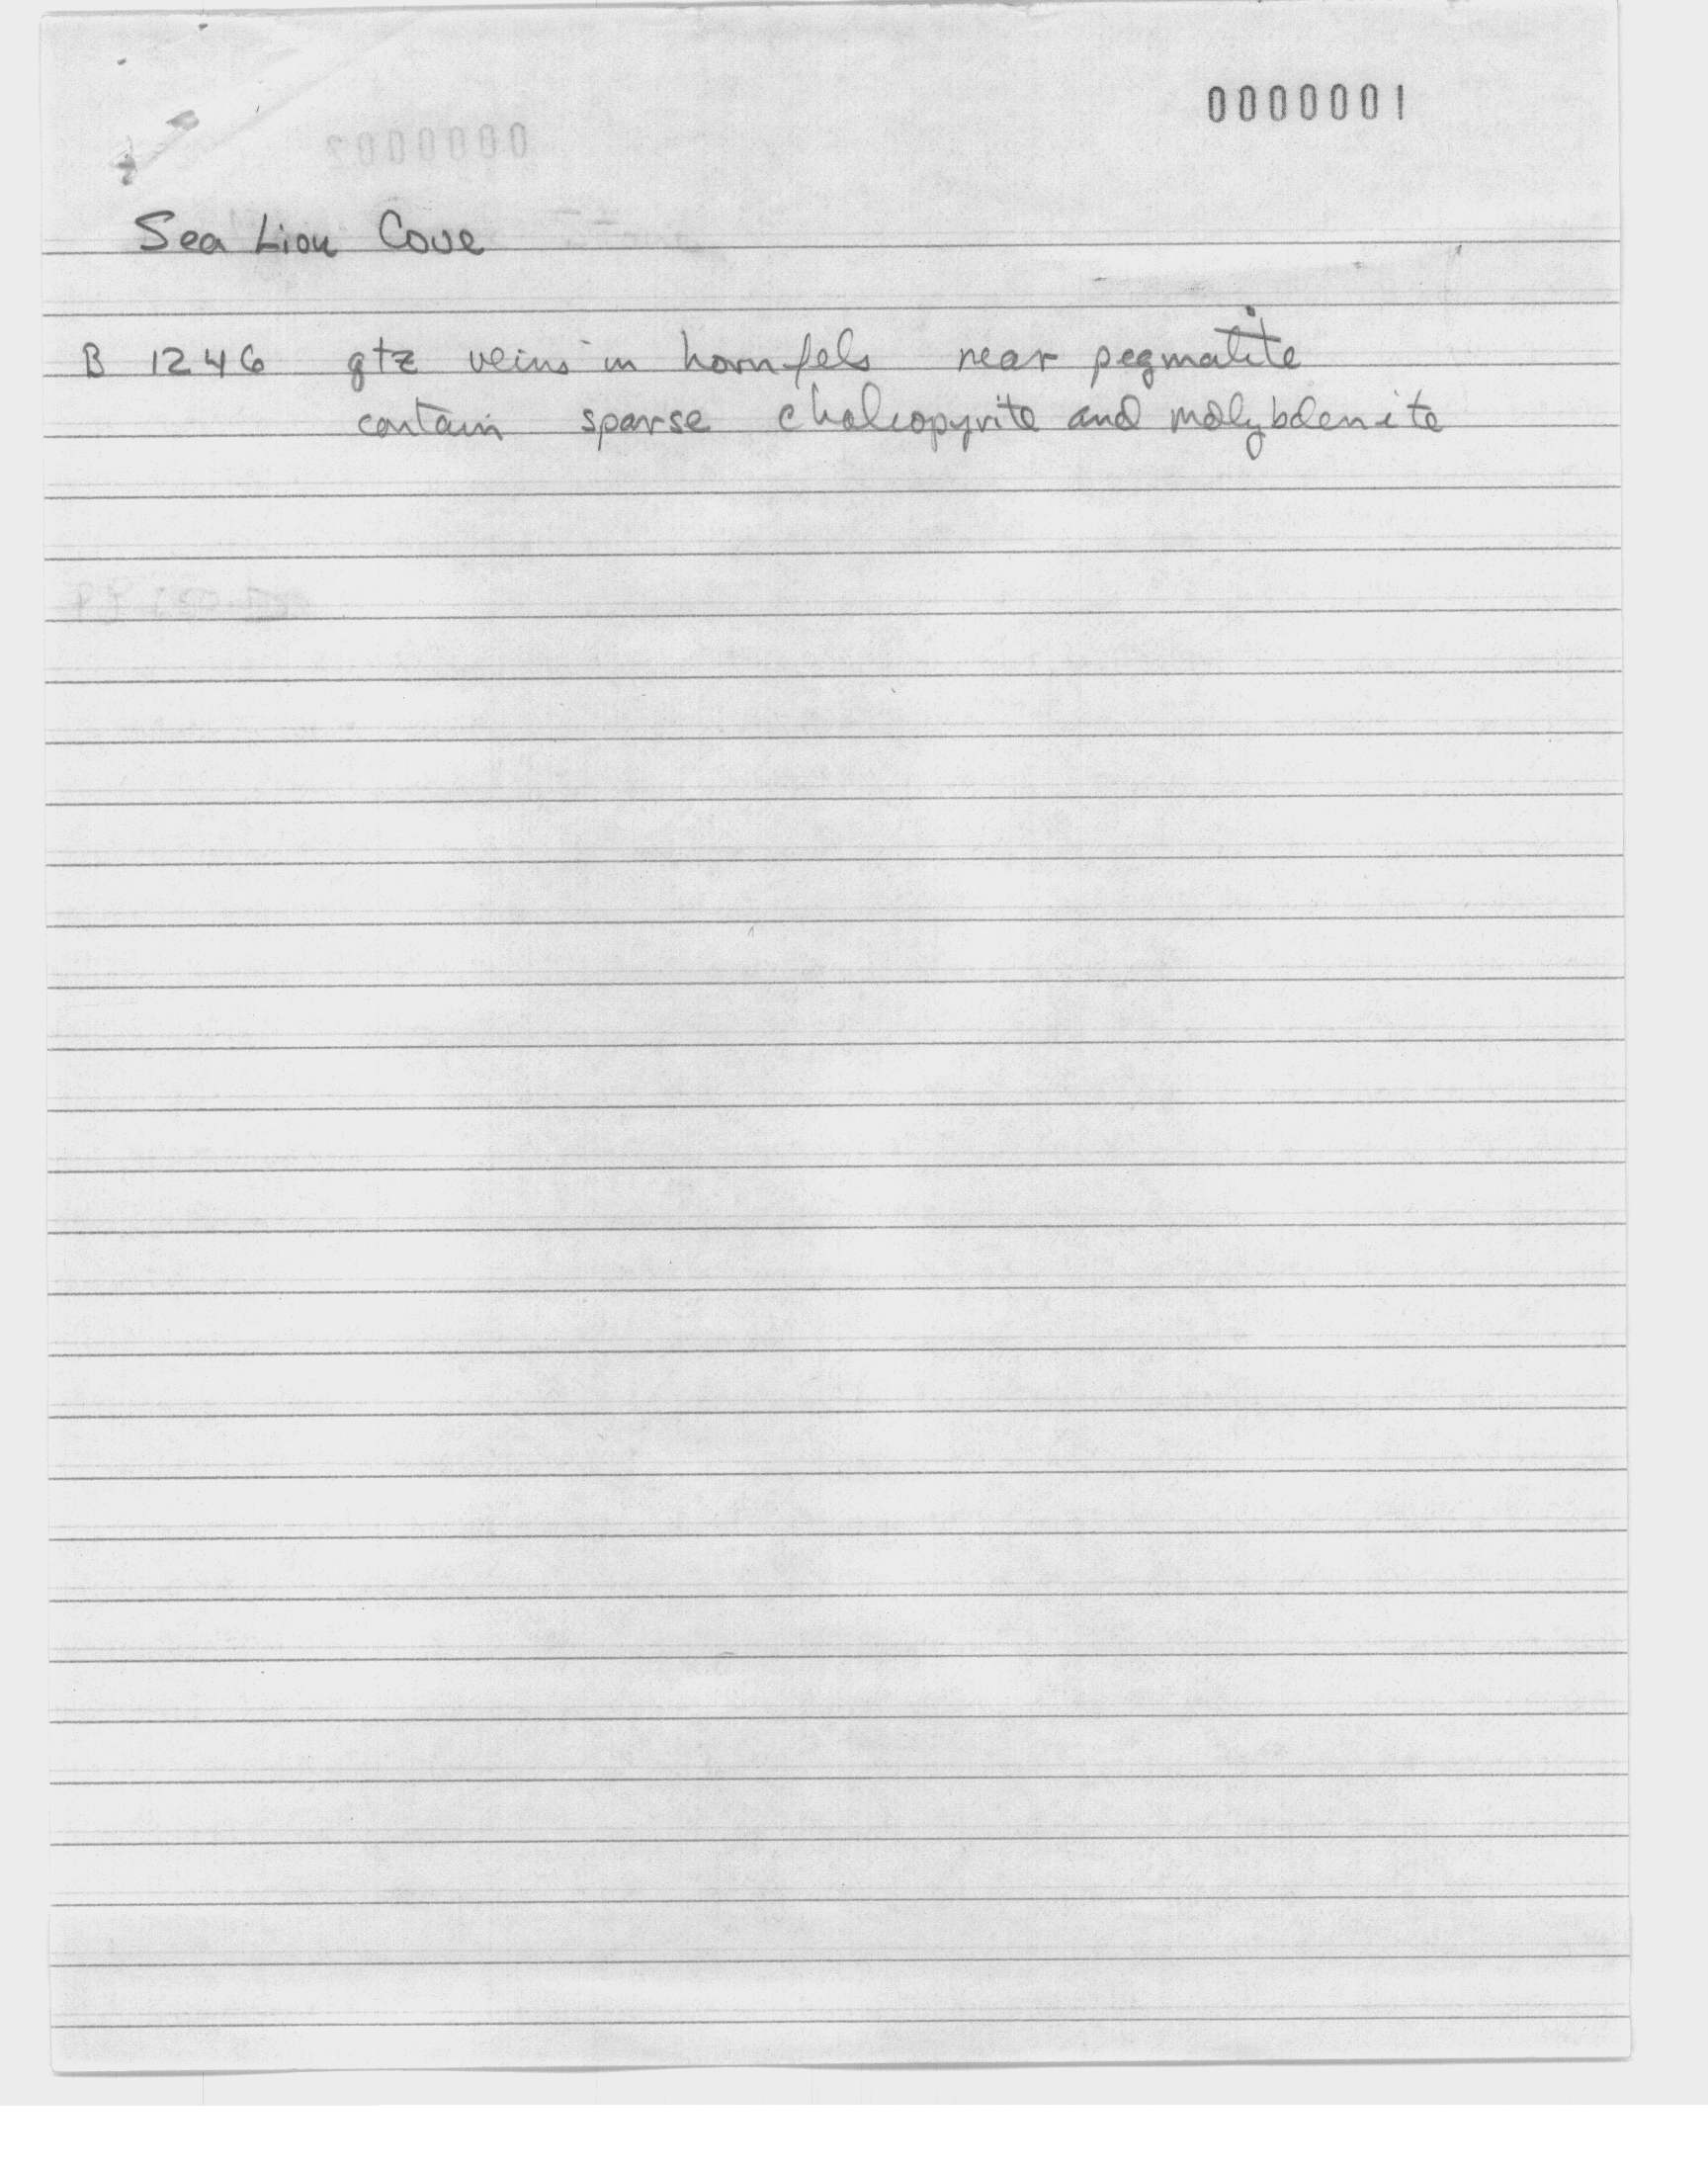 0000001
Sea Lion Cove
B 1246 qtz veins in hornfels near pegmatite
contain sparse chalcopyrite and molybdenite